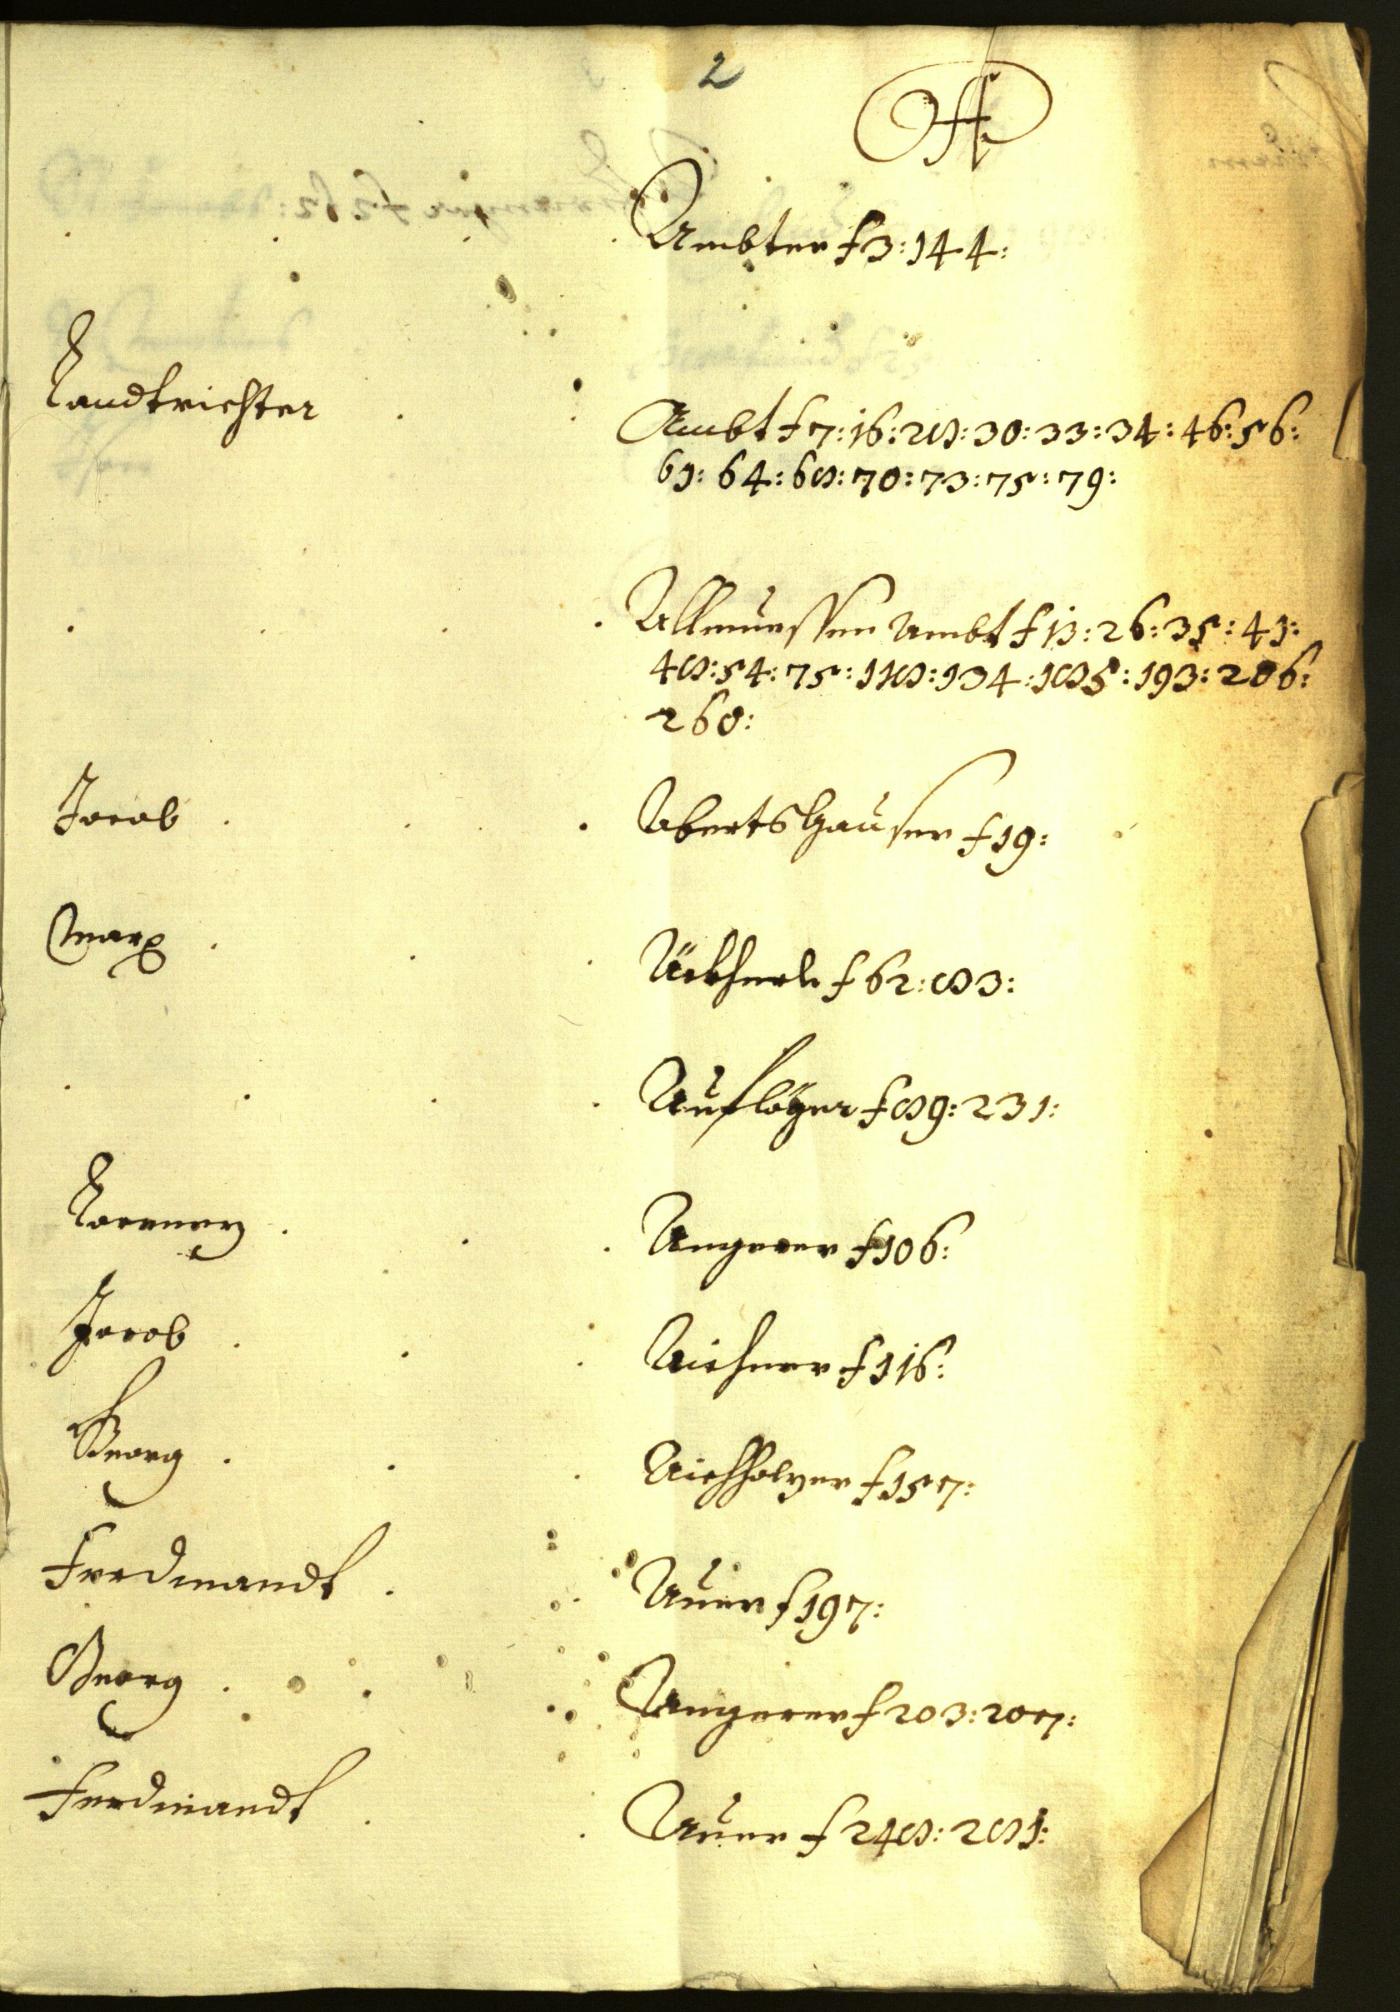 2
A
Ambter f 3: 144:
Landtrichter . Ambt f 7: 16: 28: 30: 33: 34: 46: 56:
61: 64: 68: 70: 73: 75: 79:
Allmuessen Ambt f 13: 26: 35: 41:
48: 54: 75: 118: 134: 185: 193: 206:
260:
Jacob . Abertshauser f 19:
Marx . f 62: 83:
Aufleger f 89: 231:
Lorenn . Angerer f 106:
Jacob . Aichner f 116:
Georg . Aichholzer f 157:
Ferdinandt . Auer f 197:
Georg . Angerer f 203: 207:
Ferdinandt . Auer f 248: 281: